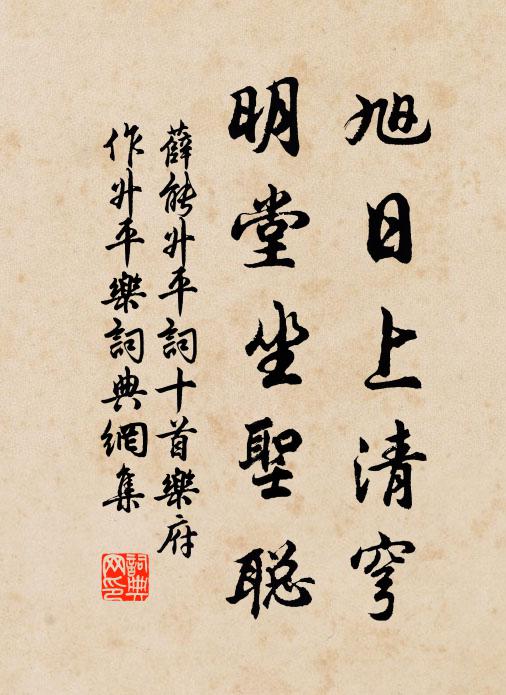 旭日上清穹
明堂坐聖聡
薛能升平詞十首樂府
作升平樂詞典網集
詞典網印